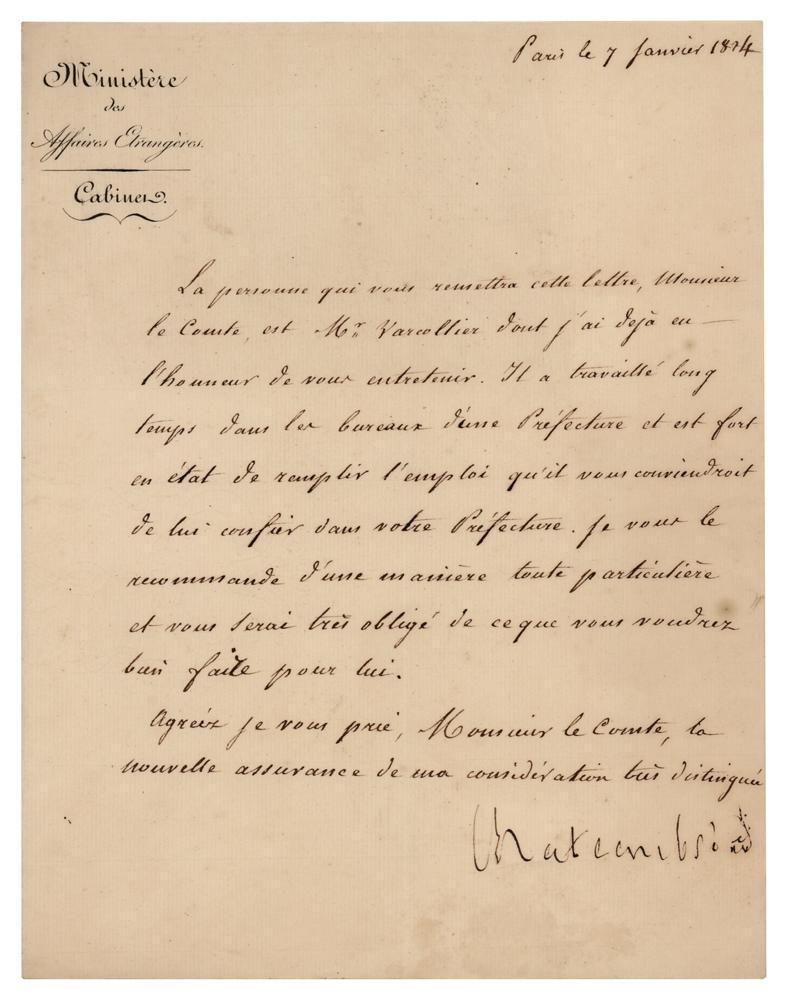 Paris le 7 Janvier 1824
Ministère
des
Affaires Etrangères.
Cabinet.
La personne qui vous remettra cette lettre, Monsieur
le Comte, est Mr. Varcollier dont j'ai dejà eu —
l'honneur de vous entretenir. Il a travaillé long
temps dans les bureaux d'une Préfecture et est fort
en état de remplir l'emploi qu'il vous conviendroit
de lui confier dans votre Préfecture. Je vous le
recommande d'une manière toute particulière
et vous serai très obligé de ce que vous voudrez
bien faire pour lui.
Agréez je vous prie, Monsieur le Comte, la
nouvelle assurance de ma considération très distinguée
Chateaubriand